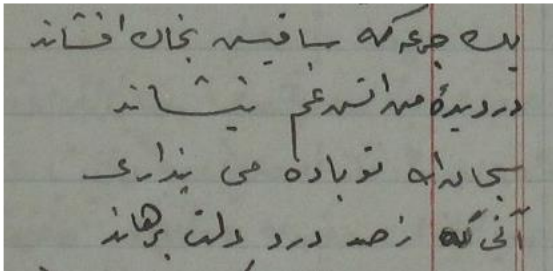 یک جرعه که ساقیت بخاک افشاند
در دیدهٔ من آتش غم بنشاند
سبحان اله تو باده می پنداری
آنی که ز صد درد دلت برهاند